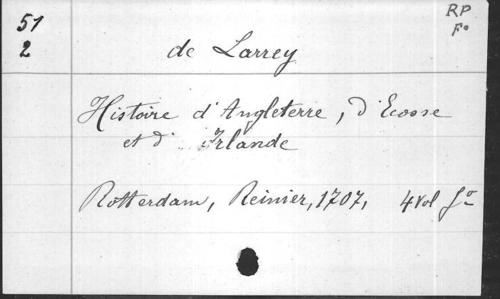 51
2
RP
Fº
de Larrey
Histoire d'Angleterre, d'Ecosse
et d' Irlande
Rotterdam, Reinier, 1707, 4 vol fº